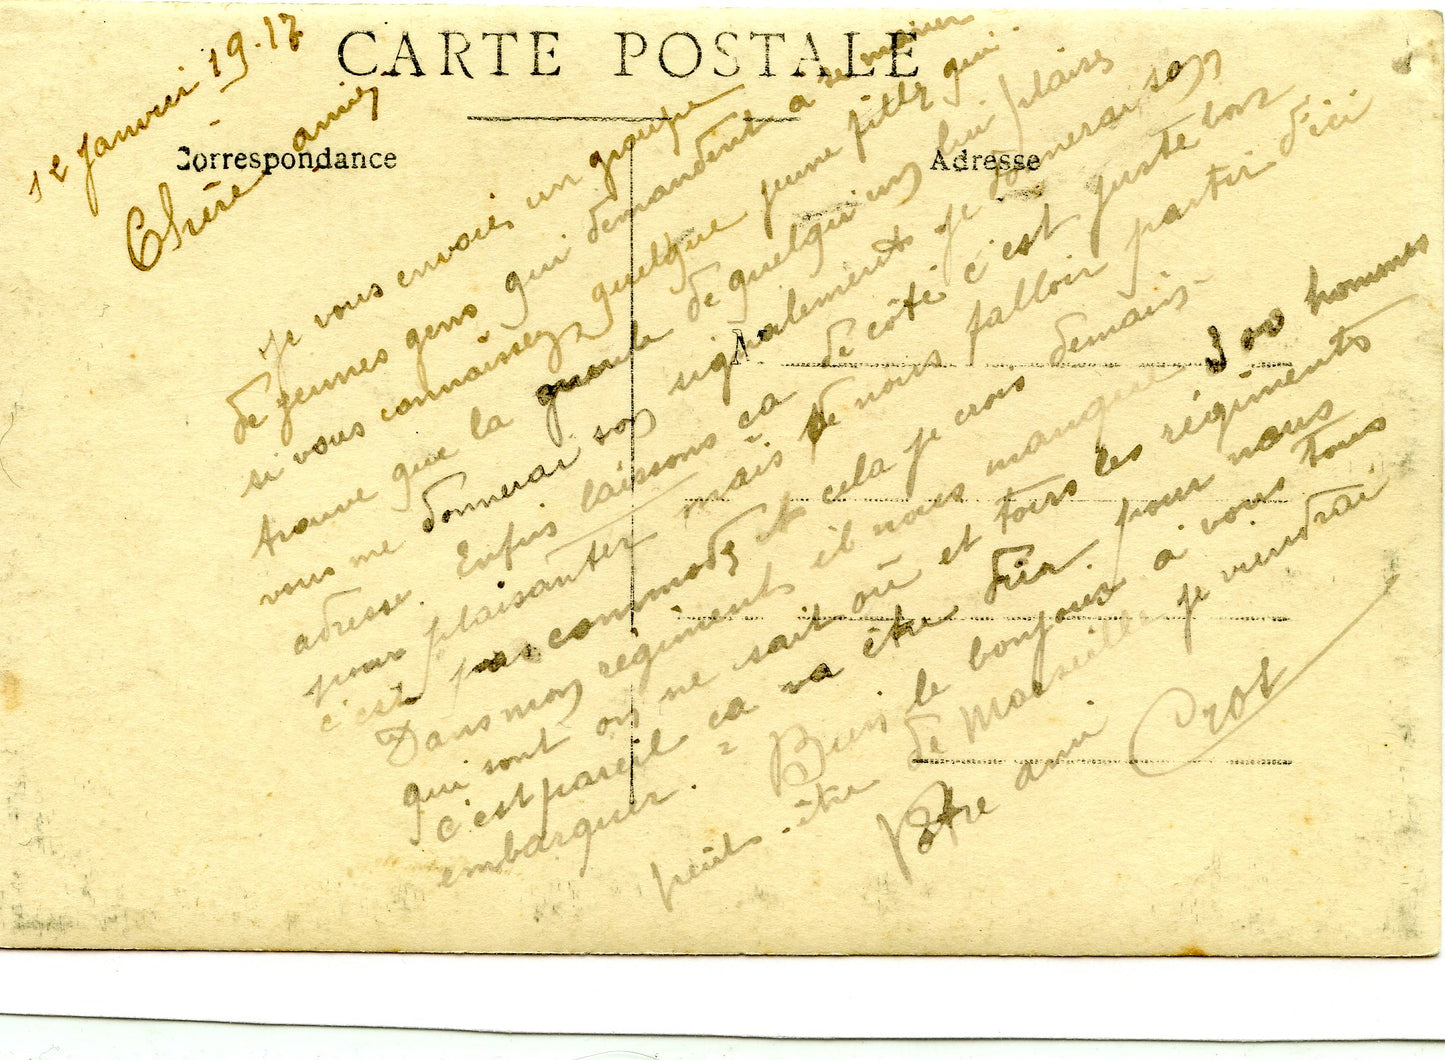 CARTE POSTALE
Correspondance
Adresse
1e Janvier 19-17
Chère amie
Je vous envoies un groupe
de jeunes gens qui demandent a se marier
si vous connaissez quelque jeune fille qui
trouve que la gueule de quelqu'uns lui plaises
vous me donnerai son signalements je donnerai son
adresse. Enfin laissons ca de côté c'est juste bon
pour plaisanter mais de nous falloir partir d'ici
c'est pas commode et cela je crois demain-
Dans mon régiments il nous manque 300 hommes
qui sont on ne sait où et tous les régiments
c'est pareil ca va être dur pour nous
embarquer. = Bien le bonjour a vous tous
peut-être de Marseille je viendrai
Vôtre ami Crot